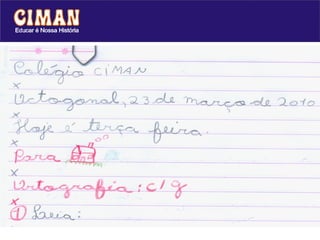 CIMAN
Educar é Nossa História
Colégio CIMAN
Octogonal, 23 de março de 2010
Hoje é terça feira.
Para
Ortografia: c/g
1 Leia: